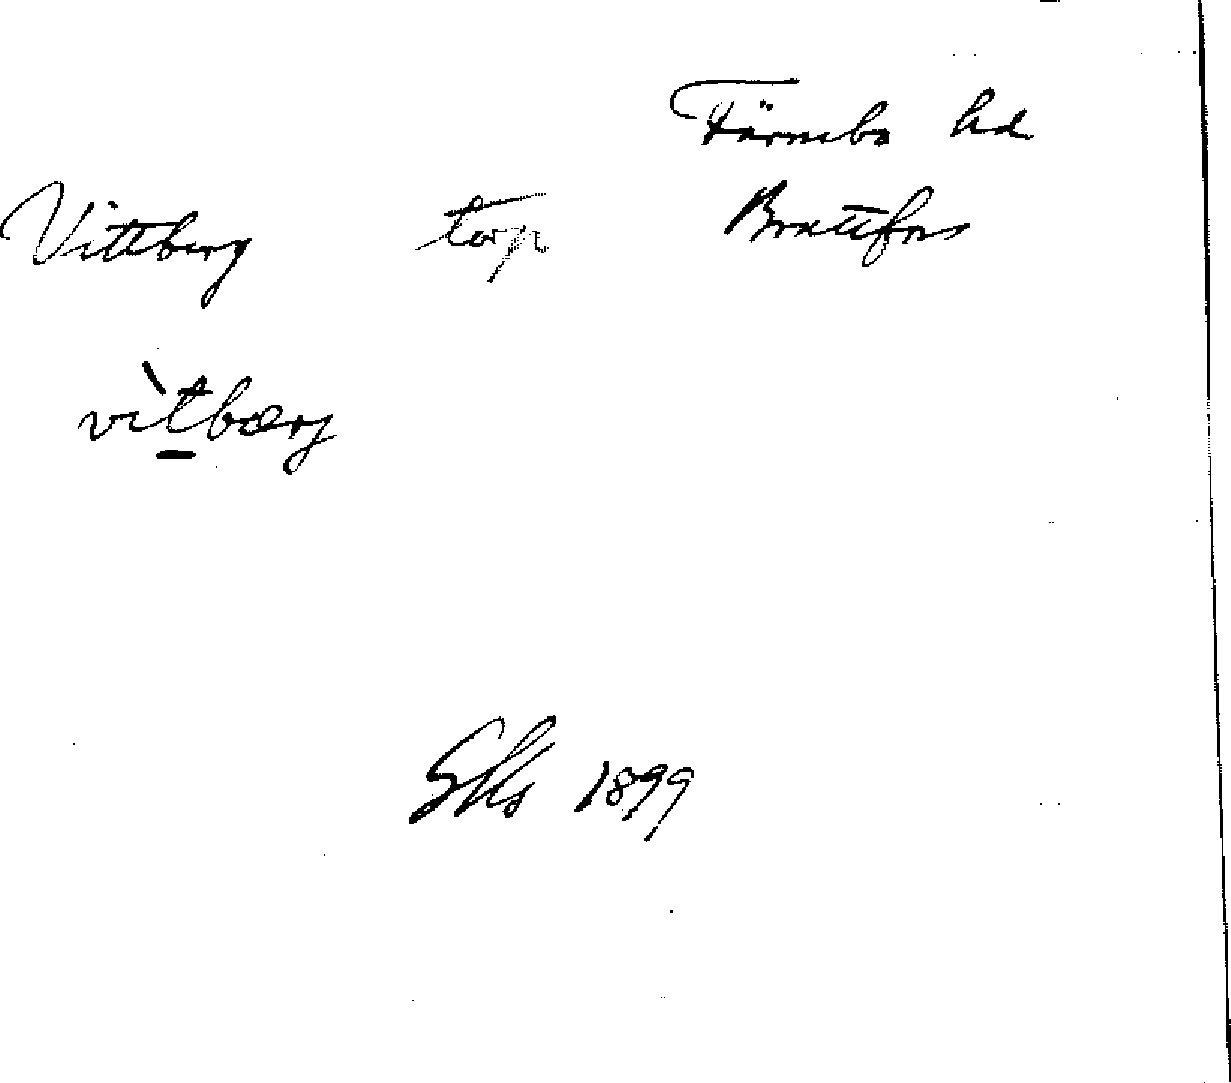 Färnebo hd
Vittberg torp Brattfors
vìtbærj
SKs 1899